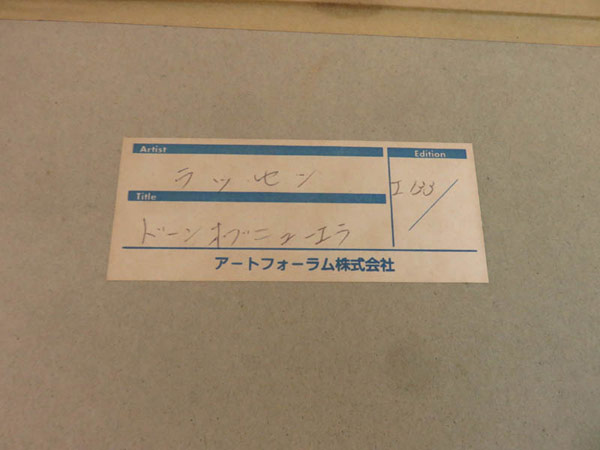 Artist
Edition
ラッセン
I 133/
Title
ドーンオブニューエラ
アートフォーラム株式会社